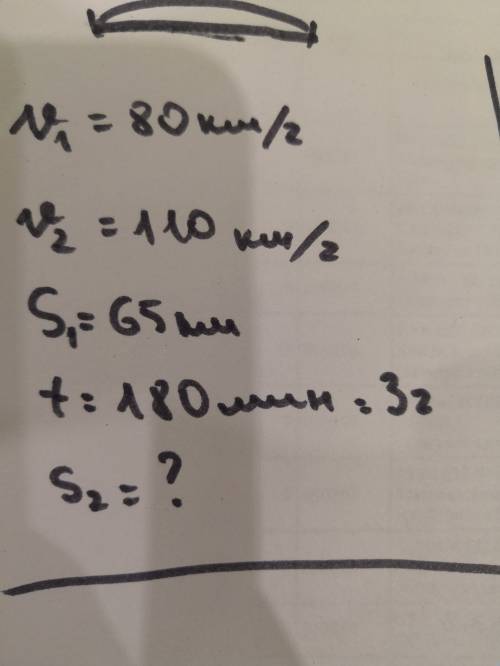 v₁ = 80 км/г
v₂ = 110 км/г
S₁ = 65 км
t = 180 мин = 3г
S₂ = ?